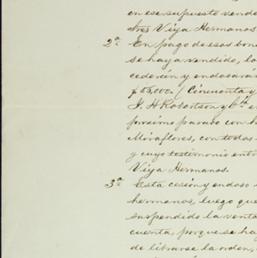 en ese supuesto vende
tres Viya Hermanos
2ª En pago de esos bon
se haya vendido, lo
cederán y endosará
£ 53,000 / Cincuenta y
J. H. Robertson y Cª e
próximo pasado con h
Miraflores, con todas
y cuyo testimonio entr
Viya Hermanos.
3ª Esta cesión y endoso
hermanos, luego que
suspendido la venta
cuenta porque se ha
de librarse la orden,